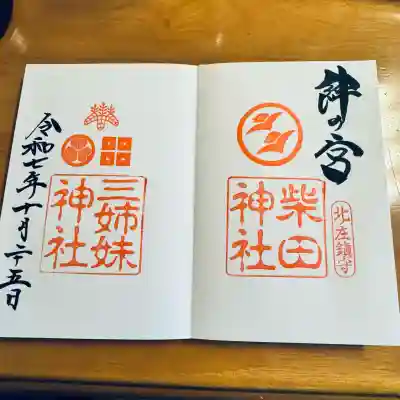 絆の宮
北庄鎮守
柴田神社
三姉妹神社
令和七年十月二十五日